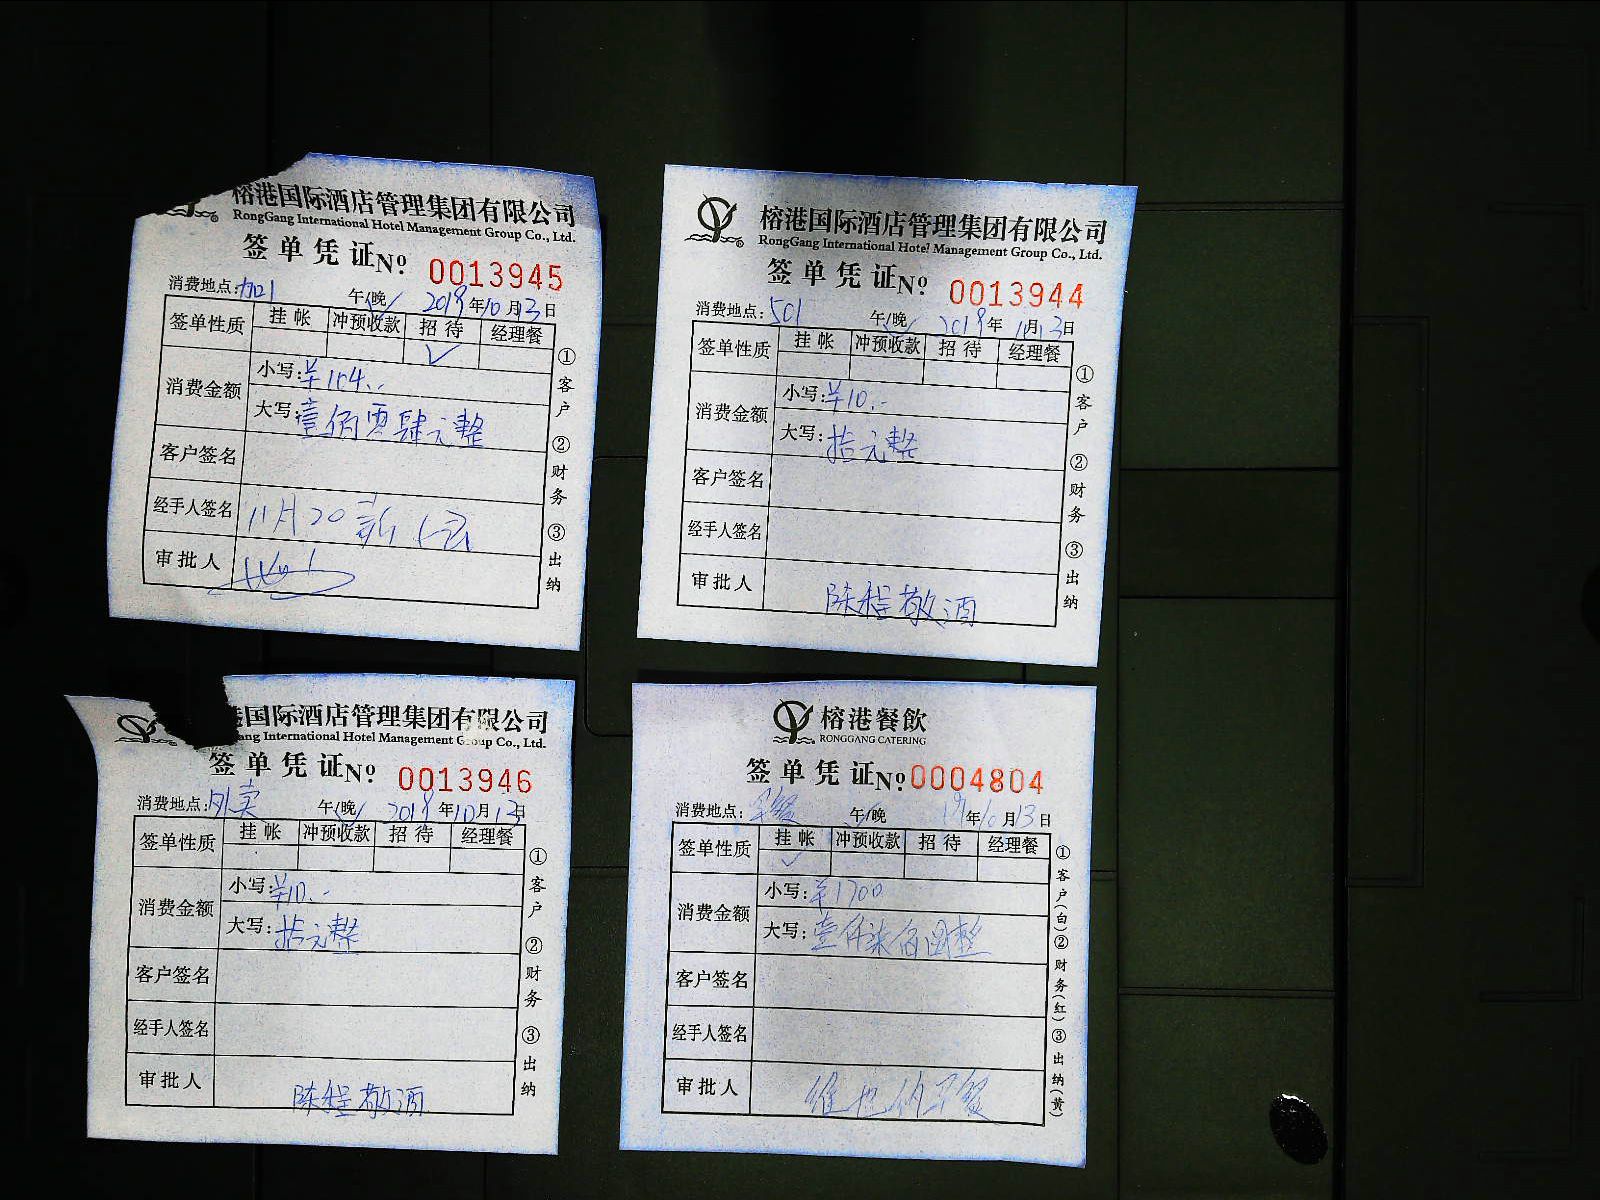 榕港国际酒店管理集团有限公司
RongGang International Hotel Management Group Co., Ltd.
签单凭证 Nº 0013945
消费地点:加1 午/晚 2019年10月13日
签单性质 挂帐 冲预收款 招待 经理餐
✓
消费金额 小写:¥104..
大写:壹佰零肆元整
客户签名
经手人签名 11月20
审批人
①客户 ②财务 ③出纳
榕港国际酒店管理集团有限公司
RongGang International Hotel Management Group Co., Ltd.
签单凭证 Nº 0013944
消费地点:501 午/晚 2019年 月13日
签单性质 挂帐 冲预收款 招待 经理餐
消费金额 小写:¥10.-
大写:拾元整
客户签名
经手人签名
审批人 陈程敬酒
①客户 ②财务 ③出纳
国际酒店管理集团有限公司
ang International Hotel Management Group Co., Ltd.
签单凭证 Nº 0013946
消费地点:外卖 午/晚 2019年10月13日
签单性质 挂帐 冲预收款 招待 经理餐
消费金额 小写:¥10.-
大写:拾元整
客户签名
经手人签名
审批人 陈程敬酒
①客户 ②财务 ③出纳
榕港餐飲
RONGGANG CATERING
签单凭证 Nº 0004804
消费地点:早餐 午/晚 19年10月13日
签单性质 挂帐 冲预收款 招待 经理餐
✓
消费金额 小写:¥1700
大写:壹仟柒佰圆整
客户签名
经手人签名
审批人 维也纳早餐
①客户(白)②财务(红)③出纳(黄)